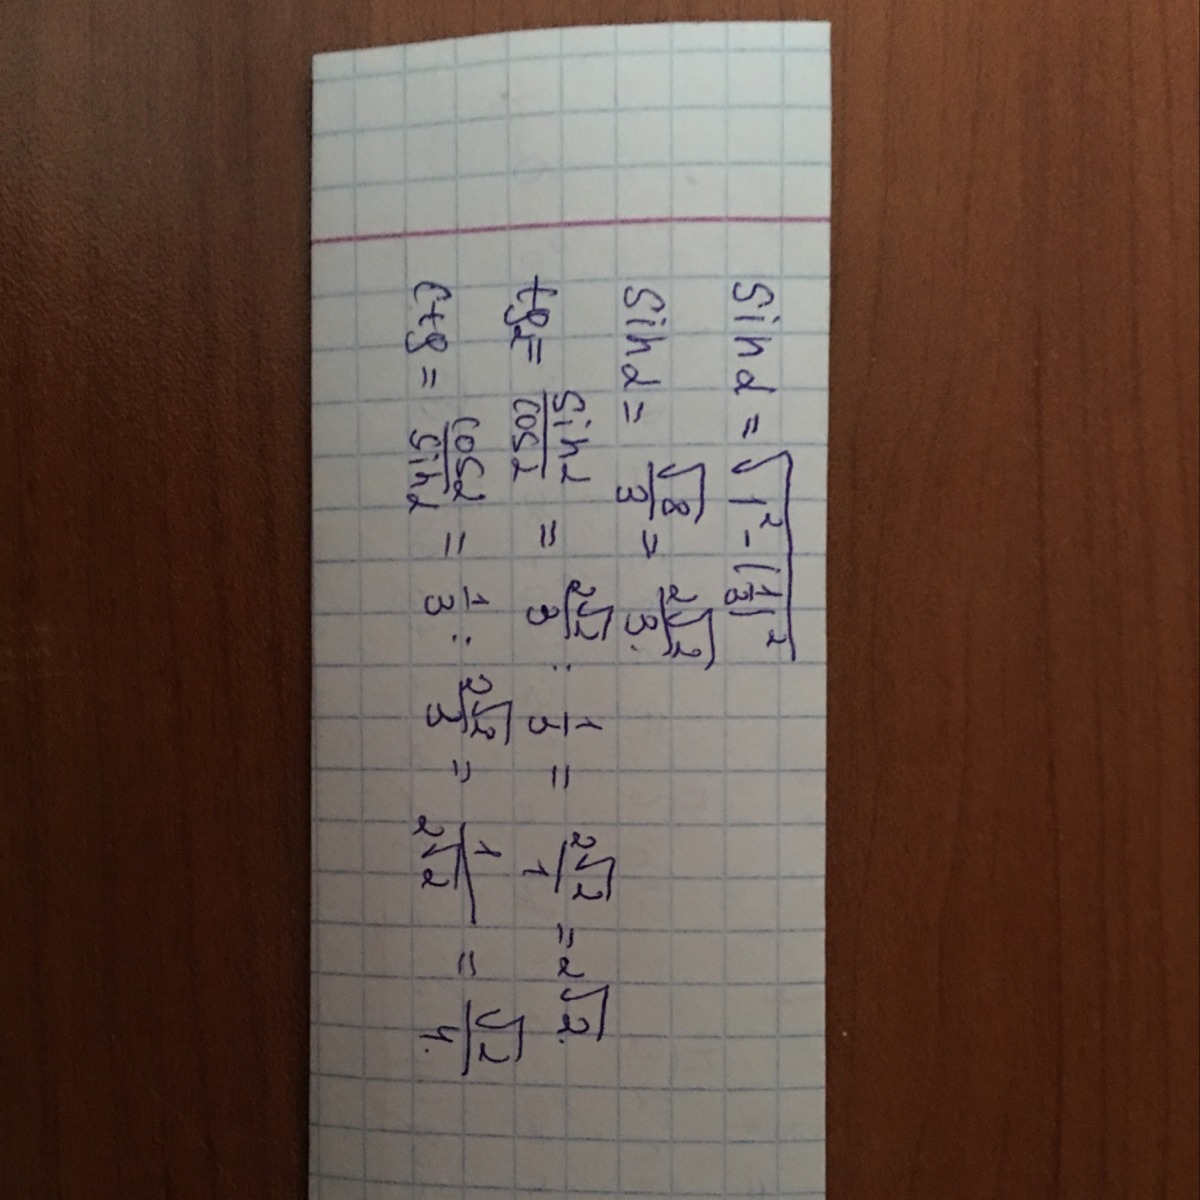 sin α = √(1² - (1/3)²)
sin α = √8/3 = 2√2/3.
tg α = sin α/cos α = 2√2/3 : 1/3 = 2√2/1 = 2√2.
ctg = cos α/sin α = 1/3 : 2√2/3 = 1/2√2 = √2/4.